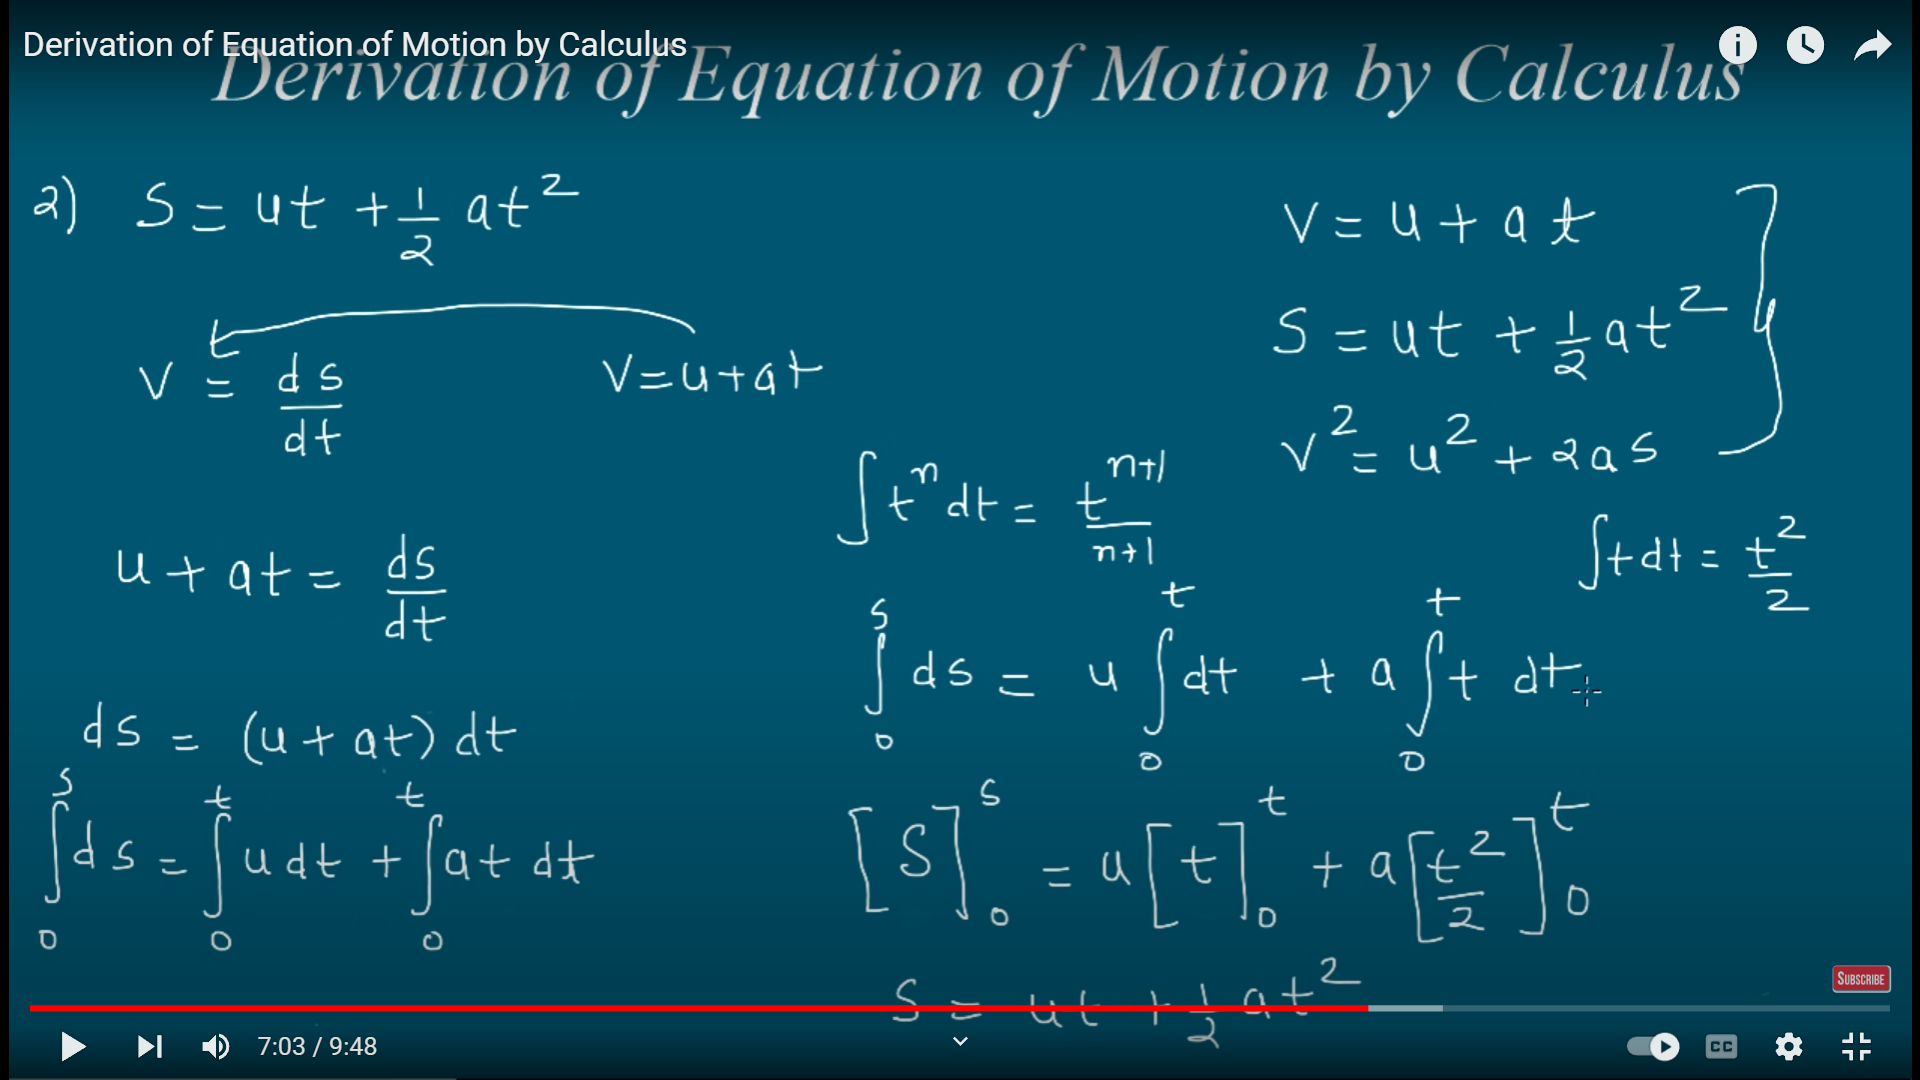 Derivation of Equation of Motion by Calculus
Derivation of Equation of Motion by Calculus
2) S = ut + 1/2 at²
v = ds/dt
v = u + at
u + at = ds/dt
ds = (u + at) dt
∫₀ˢ ds = ∫₀ᵗ u dt + ∫₀ᵗ at dt
v = u + at
S = ut + 1/2 at²
v² = u² + 2as
∫ tⁿ dt = tⁿ⁺¹/n+1
∫ t dt = t²/2
∫₀ˢ ds = u ∫₀ᵗ dt + a ∫₀ᵗ t dt
[S]₀ˢ = u [t]₀ᵗ + a [t²/2]₀ᵗ
S = ut + 1/2 at²
SUBSCRIBE
7:03 / 9:48
CC